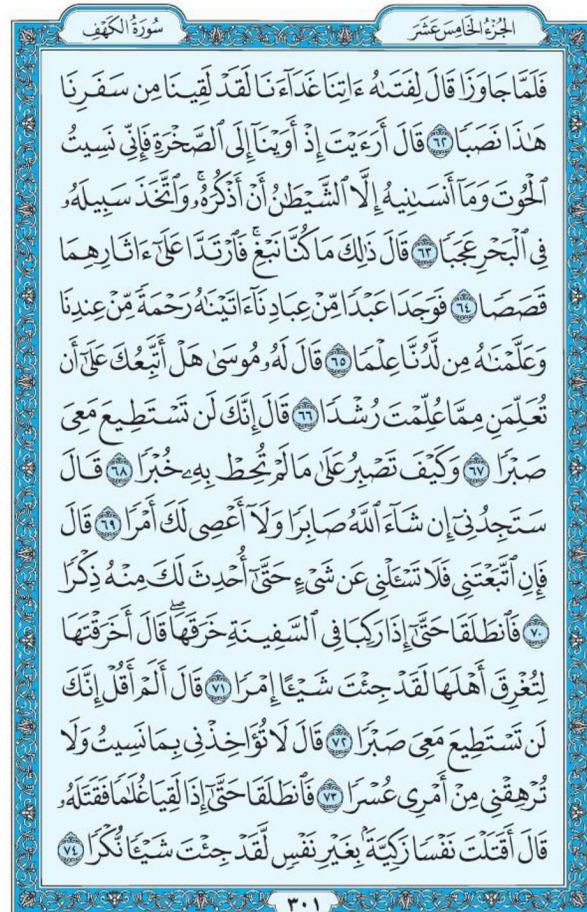 الجُزْءُ الخَامِسَ عَشَرَ
سُورَةُ الكَهْفِ
فَلَمَّا جَاوَزَا قَالَ لِفَتَىٰهُ ءَاتِنَا غَدَآءَنَا لَقَدْ لَقِينَا مِن سَفَرِنَا
هَٰذَا نَصَبًا ٦٢ قَالَ أَرَءَيْتَ إِذْ أَوَيْنَآ إِلَى ٱلصَّخْرَةِ فَإِنِّي نَسِيتُ
ٱلْحُوتَ وَمَآ أَنسَىٰنِيهُ إِلَّا ٱلشَّيْطَٰنُ أَنْ أَذْكُرَهُۥۚ وَٱتَّخَذَ سَبِيلَهُۥ
فِي ٱلْبَحْرِ عَجَبًا ٦٣ قَالَ ذَٰلِكَ مَا كُنَّا نَبْغِۚ فَٱرْتَدَّا عَلَىٰٓ ءَاثَارِهِمَا
قَصَصًا ٦٤ فَوَجَدَا عَبْدًا مِّنْ عِبَادِنَآ ءَاتَيْنَٰهُ رَحْمَةً مِّنْ عِندِنَا
وَعَلَّمْنَٰهُ مِن لَّدُنَّا عِلْمًا ٦٥ قَالَ لَهُۥ مُوسَىٰ هَلْ أَتَّبِعُكَ عَلَىٰٓ أَن
تُعَلِّمَنِ مِمَّا عُلِّمْتَ رُشْدًا ٦٦ قَالَ إِنَّكَ لَن تَسْتَطِيعَ مَعِيَ
صَبْرًا ٦٧ وَكَيْفَ تَصْبِرُ عَلَىٰ مَا لَمْ تُحِطْ بِهِۦ خُبْرًا ٦٨ قَالَ
سَتَجِدُنِيٓ إِن شَآءَ ٱللَّهُ صَابِرًا وَلَآ أَعْصِي لَكَ أَمْرًا ٦٩ قَالَ
فَإِنِ ٱتَّبَعْتَنِي فَلَا تَسْـَٔلْنِي عَن شَيْءٍ حَتَّىٰٓ أُحْدِثَ لَكَ مِنْهُ ذِكْرًا
٧٠ فَٱنطَلَقَا حَتَّىٰٓ إِذَا رَكِبَا فِي ٱلسَّفِينَةِ خَرَقَهَاۖ قَالَ أَخَرَقْتَهَا
لِتُغْرِقَ أَهْلَهَا لَقَدْ جِئْتَ شَيْـًٔا إِمْرًا ٧١ قَالَ أَلَمْ أَقُلْ إِنَّكَ
لَن تَسْتَطِيعَ مَعِيَ صَبْرًا ٧٢ قَالَ لَا تُؤَاخِذْنِي بِمَا نَسِيتُ وَلَا
تُرْهِقْنِي مِنْ أَمْرِي عُسْرًا ٧٣ فَٱنطَلَقَا حَتَّىٰٓ إِذَا لَقِيَا غُلَٰمًا فَقَتَلَهُۥ
قَالَ أَقَتَلْتَ نَفْسًا زَكِيَّةًۢ بِغَيْرِ نَفْسٍ لَّقَدْ جِئْتَ شَيْـًٔا نُّكْرًا ٧٤
٣٠١